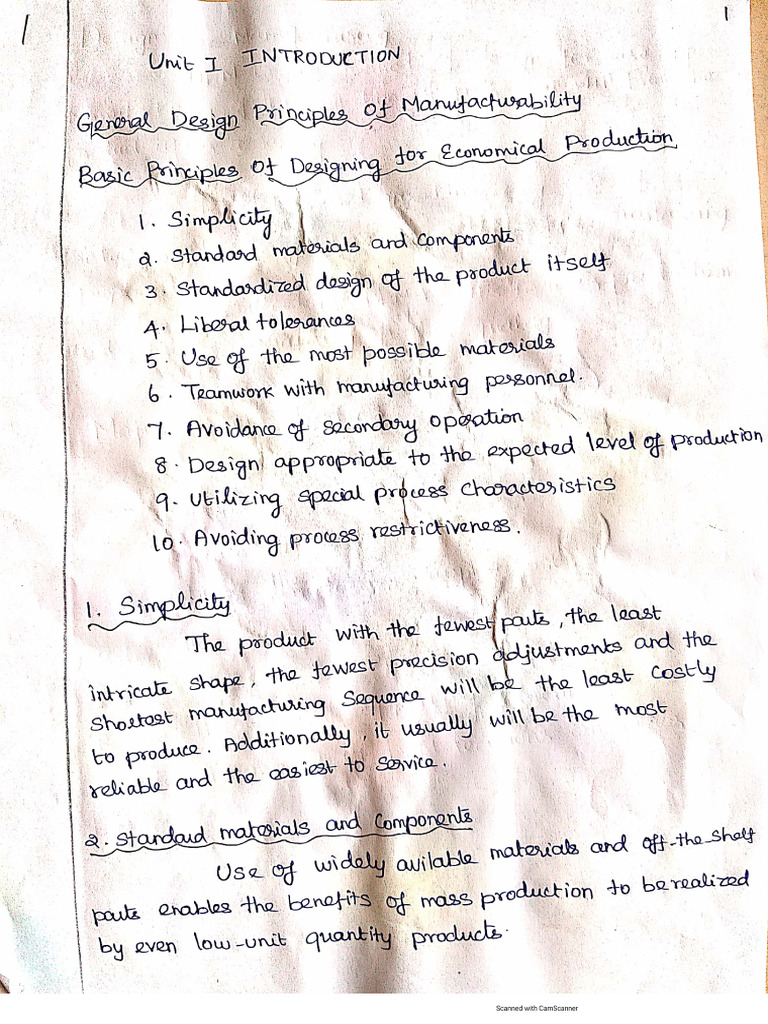 1
1
Unit I INTRODUCTION
General Design Principles of Manufacturability
Basic Principles of Designing for Economical Production
1. Simplicity
2. Standard materials and components
3. Standardized design of the product itself
4. Liberal tolerances
5. Use of the most possible materials
6. Teamwork with manufacturing personnel.
7. Avoidance of secondary operation
8. Design appropriate to the expected level of production
9. Utilizing special process characteristics
10. Avoiding process restrictiveness.
1. Simplicity
The product with the fewest parts, the least
intricate shape, the fewest precision adjustments and the
shortest manufacturing sequence will be the least costly
to produce. Additionally, it usually will be the most
reliable and the easiest to service.
2. Standard materials and components
Use of widely avilable materials and off-the-shelf
parts enables the benefits of mass production to be realized
by even low-unit quantity products.
Scanned with CamScanner